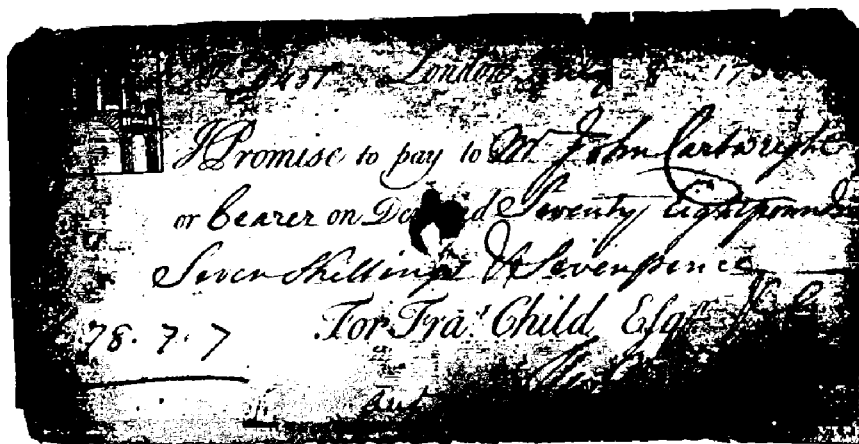 London
I Promise to pay to Mr. John Cartwright
or bearer on Demand Seventy Eight pounds
Seven Shillings & Sevenpence
78.7.7 For Fra.s Child Esqr.